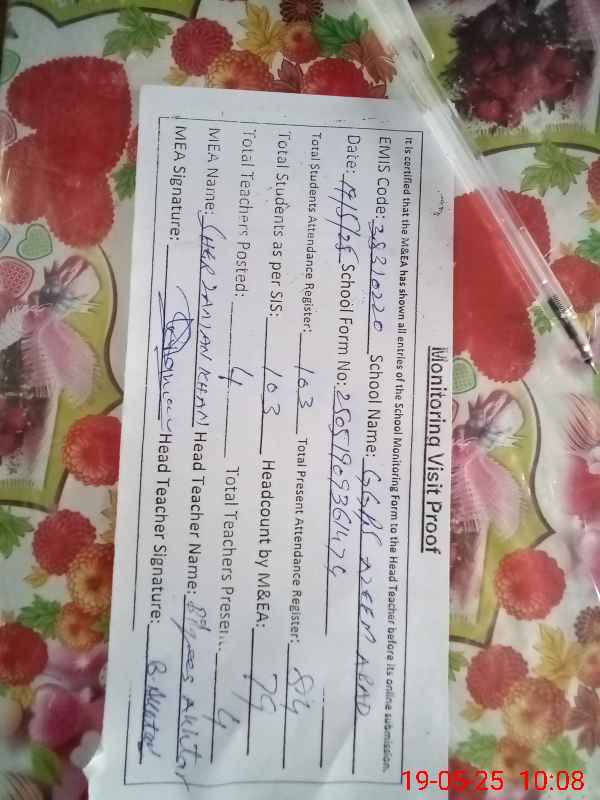 Monitoring Visit Proof
It is certified that the M&EA has shown all entries of the School Monitoring Form to the Head Teacher before its online submission.
EMIS Code: 38310220 School Name: G.G.P/S AZEEM ABAD
Date: 19/5/25 School Form No: 25051909361479
Total Students Attendance Register: 103 Total Present Attendance Register: 84
Total Students as per SIS: 103 Headcount by M&EA: 79
Total Teachers Posted: 4 Total Teachers Present: 4
MEA Name: SHER KHAN Head Teacher Name: Akhtar
MEA Signature: Head Teacher Signature:
19-05-25 10:08